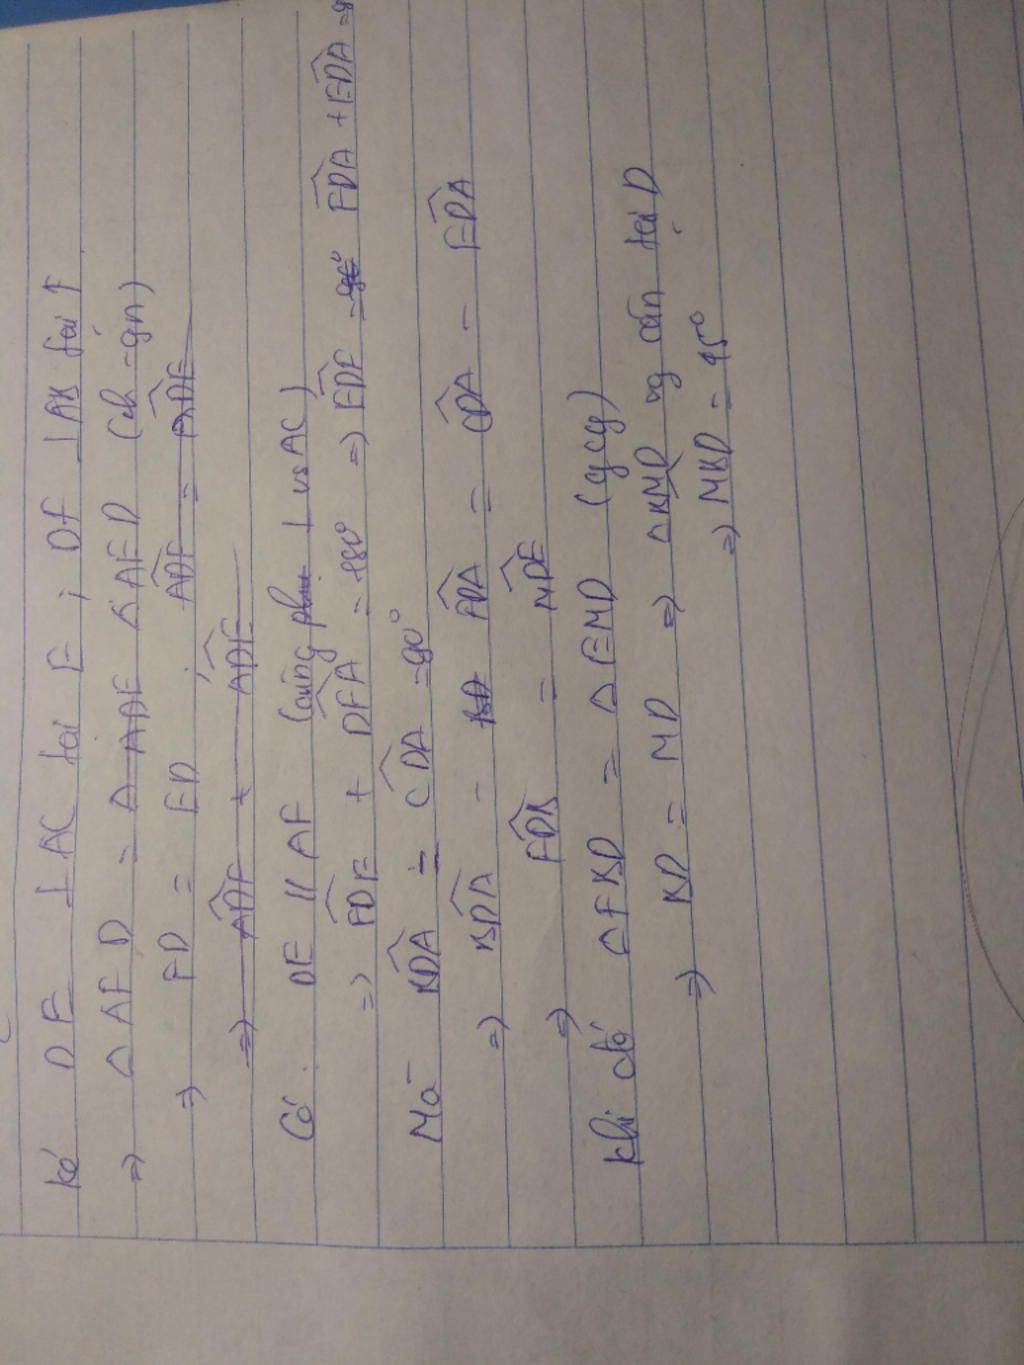 Kẻ DE ⊥ AC tại E ; DF ⊥ AB tại F
=> △ AFD = △ AED (ch - gn)
=> FD = ED ; ADF = ADE
=> ADF + ADE
Có DE // AF (cùng ⊥ vs AC)
=> FDE + DFA = 180° => EDF = 90° FDA + EDA =
Mà BDA = CDA = 90°
=> BDA - FDA = CDA - EDA
=> FDB = MDE
Khi đó △ FBD = △ EMD (gcg)
=> BD = MD => △ BMD vg cân tại D
=> MBD = 45°